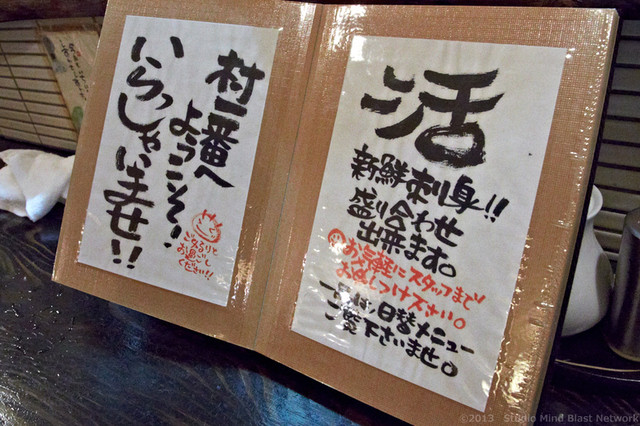 村一番へ
ようこそ!
いらっしゃいませ!!
ごゆるりと
お過ごし
ください!!
活
新鮮刺身!!
盛り合わせ
出来ます。
お気軽にスタッフまで
お申しつけ下さい。
日替メニュー
ご覧下さいませ。
©2013 Studio Mind Blast Network